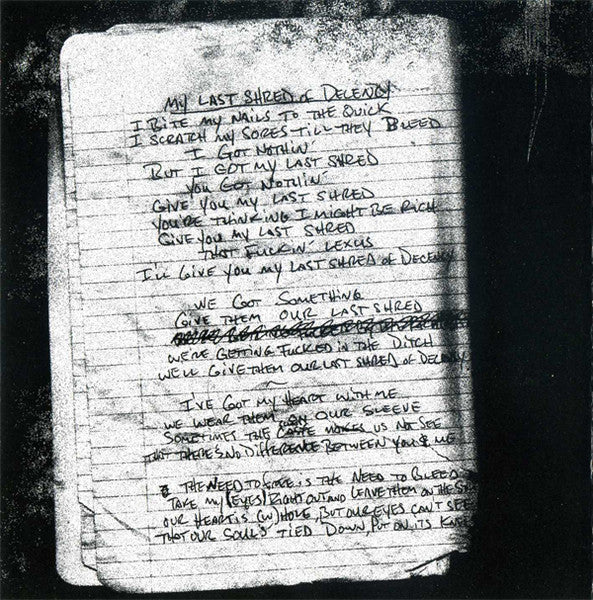 MY LAST SHRED of DECENCY
I BITE MY NAILS TO THE QUICK
I SCRATCH MY SORES TILL THEY BLEED
I GOT NOTHIN'
BUT I GOT MY LAST SHRED
YOU GOT NOTHIN'
GIVE YOU MY LAST SHRED
YOU'RE THINKING I MIGHT BE RICH
GIVE YOU MY LAST SHRED
THAT FUCKIN' LEXUS
I'LL GIVE YOU MY LAST SHRED of DECENCY
WE GOT SOMETHING
GIVE THEM OUR LAST SHRED
WE'RE GETTING FUCKED IN THE DITCH
WE'LL GIVE THEM OUR LAST SHRED of DECENCY
I'VE GOT MY HEART WITH ME
WE WEAR THEM ON OUR SLEEVE
SOMETIMES THE CASTE MAKES US NOT SEE
THAT THERE'S NO DIFFERENCE BETWEEN YOU & ME
THE NEED TO GIVE IS THE NEED TO BLEED
TAKE MY (EYES) RIGHT OUT AND LEAVE THEM ON THE
OUR HEART IS (W)HOLE, BUT OUR EYES CAN'T SEE
THAT OUR SOUL'S TIED DOWN, PUT ON ITS